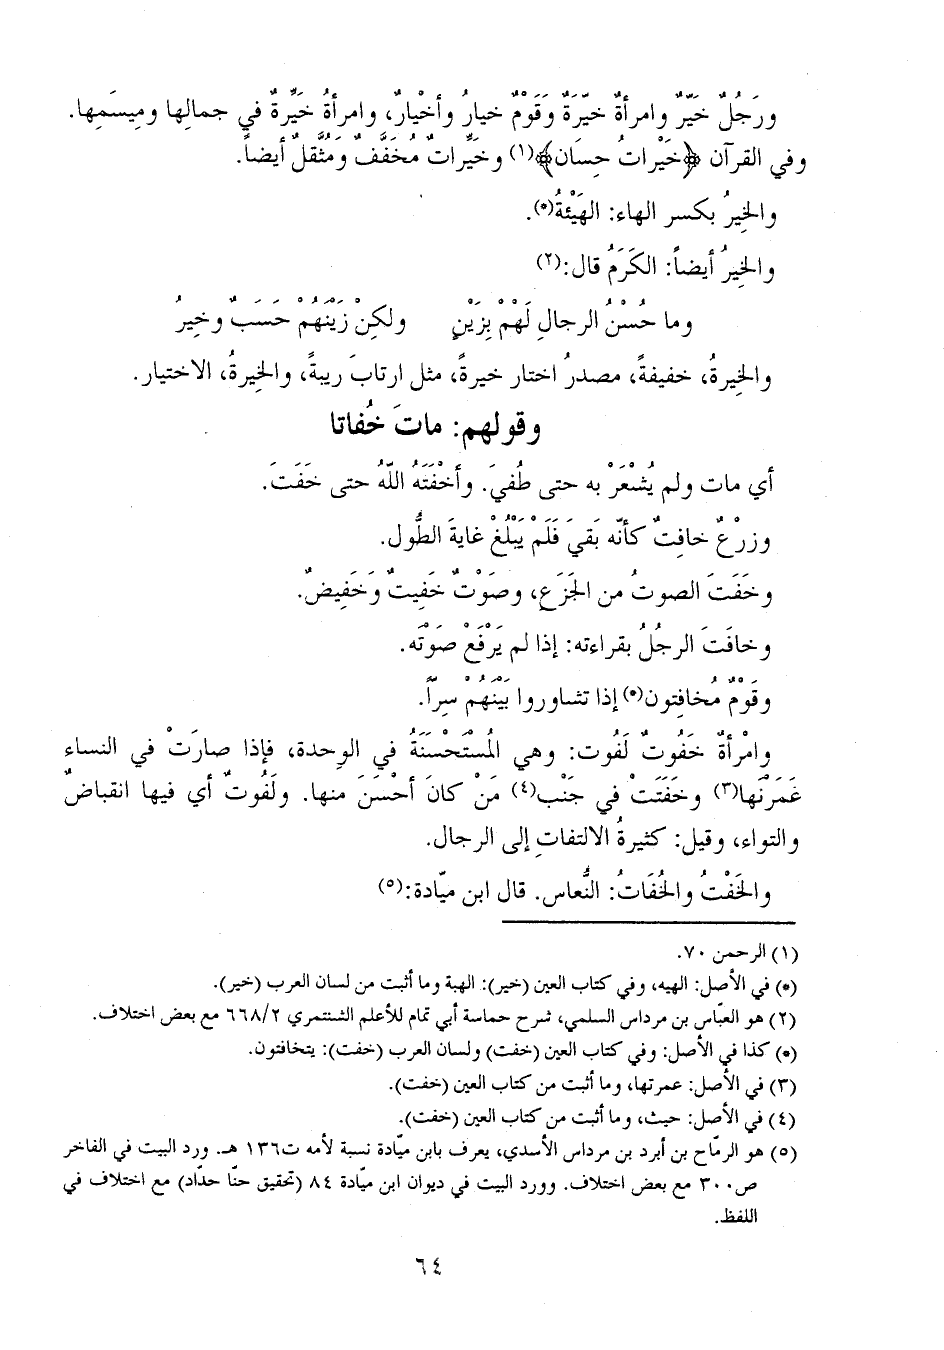 ورَجُلٌ خَيّرٌ وامرأةٌ خيّرَةٌ وَقَوْمٌ خيارٌ وأخْيارٌ، وامرأةُ خَيِّرةٌ في جمالِها ومِيسَمِها.
وفي القرآن ﴿خَيْراتُ حِسَان﴾(١) وخَيِّراتٌ مُخَفَّفٌ وَمُثَقَّلٌ أيضاً.
والخِيرُ بكسر الهاء: الهَيْئةُ(*).
والخِيرُ أيضاً: الكَرَمُ قال:(٢)
وما حُسْنُ الرجالِ لَهُمْ بِزَيْنٍ ولكِنْ زَيْنَهُمْ حَسَبٌ وخِيرُ
والخِيرةُ، خفيفةً، مصدرُ اختار خيرةً، مثل ارتابَ ريبةً، والخِيرةُ، الاختيار.
وقولهم: ماتَ خُفاتا
أي مات ولم يُشْعَرْ به حتى طُفيَ. وأخْفَتَهُ اللّهُ حتى خَفَتَ.
وزرْعٌ خافِتٌ كأنّه بَقيَ فَلَمْ يَبْلُغْ غايةَ الطُّول.
وخَفَتَ الصوتُ من الجَزَعِ، وصَوْتٌ خَفِيتٌ وَخَفِيضٌ.
وخافَتَ الرجُلُ بقراءته: إذا لم يَرْفَعْ صَوْتَه.
وقَوْمٌ مُخافِتون(*) إذا تشاوروا بَيْنَهُمْ سِرّاً.
وامْرأةٌ خَفُوتٌ لَفُوت: وهي المُسْتَحْسَنَةُ في الوِحدة، فإذا صارَتْ في النساء
غَمَرْنَها(٣) وخَفَتَتْ في جَنْب(٤) مَنْ كانَ أحْسَنَ منها. ولَفُوتٌ أي فيها انقباضٌ
والتواء، وقيل: كثيرةُ الالتفاتِ إلى الرجال.
والخَفْتُ والخُفَاتُ: النُّعاس. قال ابن ميّادة:(٥)
(١) الرحمن ٧٠.
(*) في الأصل: الهيه، وفي كتاب العين (خير): الهبة وما أثبت من لسان العرب (خير).
(٢) هو العبّاس بن مرداس السلمي، شرح حماسة أبي تمام للأعلم الشنتمري ٦٦٨/٢ مع بعض اختلاف.
(*) كذا في الأصل: وفي كتاب العين (خفت) ولسان العرب (خفت): يتخافتون.
(٣) في الأصل: عمرتها، وما أثبت من كتاب العين (خفت).
(٤) في الأصل: حيث، وما أثبت من كتاب العين (خفت).
(٥) هو الرمّاح بن أبرد بن مرداس الأسدي، يعرف بابن ميّادة نسبة لأمه ت١٣٦ هـ. ورد البيت في الفاخر
ص٣٠٠ مع بعض اختلاف. وورد البيت في ديوان ابن ميّادة ٨٤ (تحقيق حنّا حدّاد) مع اختلاف في
اللفظ.
٦٤